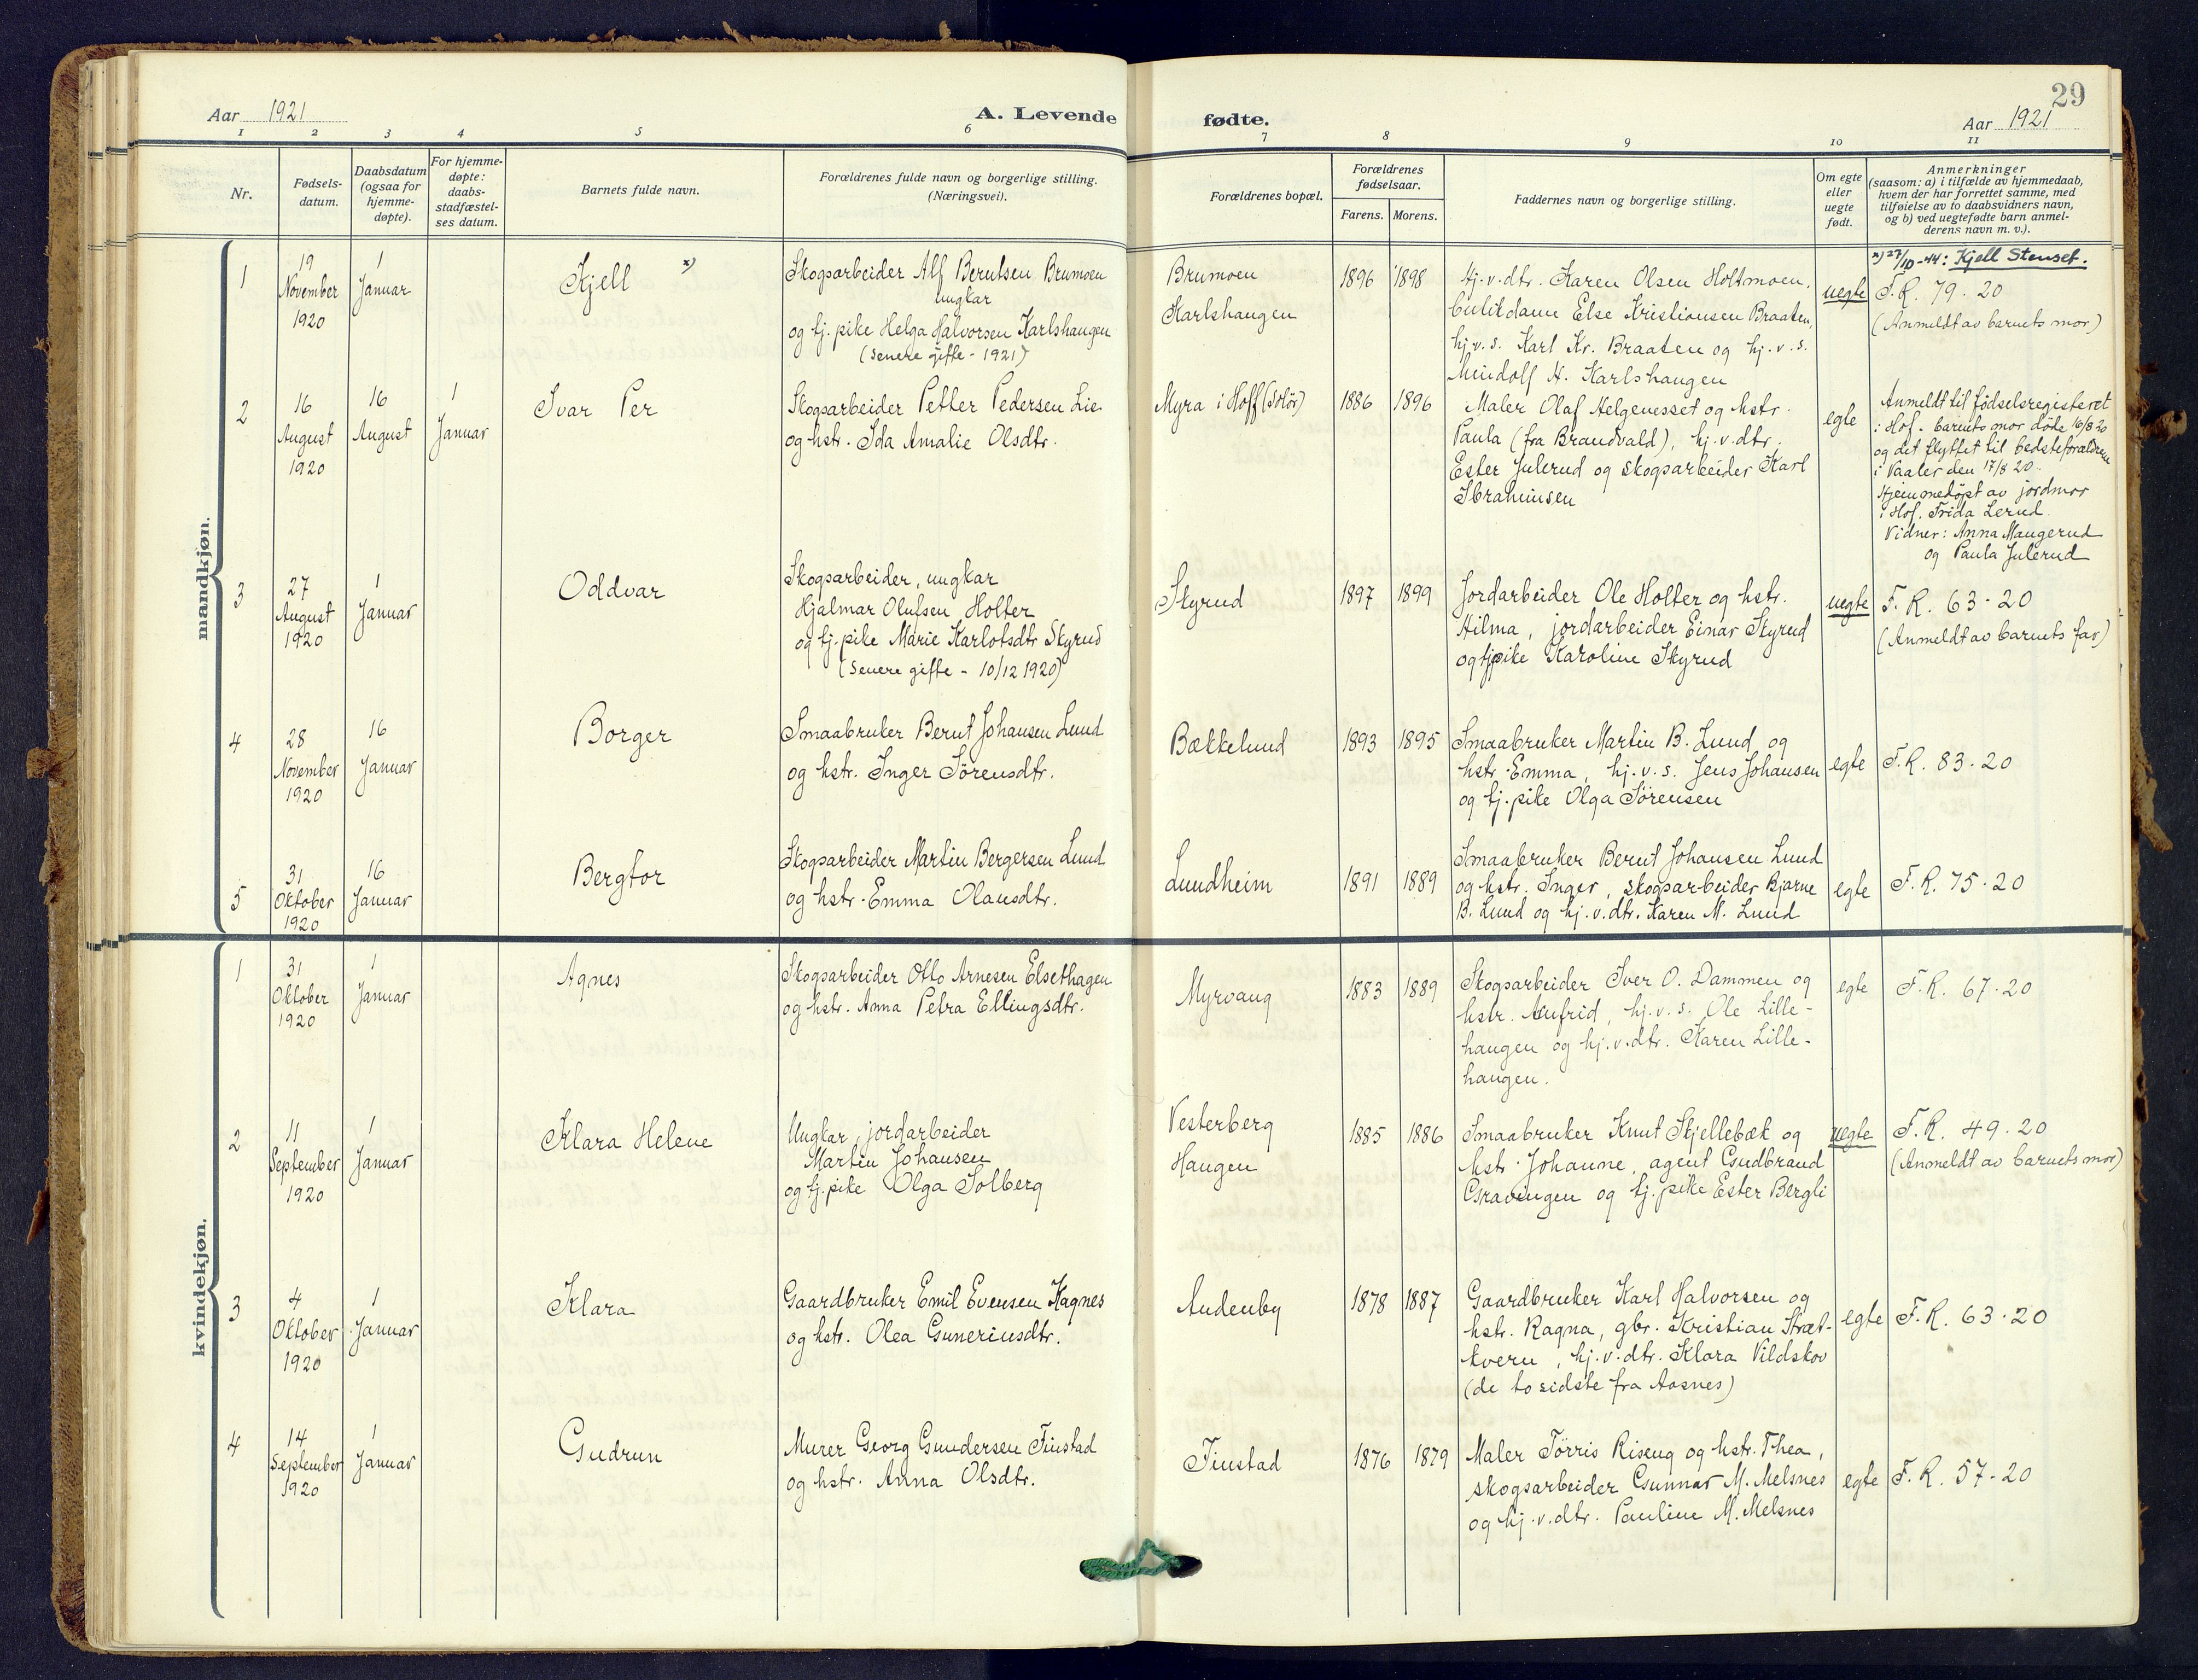 29
Aar 1921
A. Levende
fødte.
Aar 1921
1 2 3 4 5 6 7 8 9 10 11
Nr.
Fødsels-
datum.
Daabsdatum
(ogsaa for
hjemme-
døpte).
For hjemme-
døpte:
daabs-
stadfæstel-
ses datum.
Barnets fulde navn.
Forældrenes fulde navn og borgerlige stilling.
(Næringsvei).
Forældrenes bopæl.
Forældrenes
fødselsaar.
Farens. Morens.
Faddernes navn og borgerlige stilling.
Om egte
eller
uegte
født.
Anmerkninger
(saasom: a) i tilfælde av hjemmedaab,
hvem der har forrettet samme, med
tilføielse av to daabsvidners navn,
og b) ved uegtefødte barn anmel-
derens navn m. v.).
mandkjøn.
1
19
November
1920
1
Januar
Kjell x)
Skogsarbeider Alf Berntsen Brumoen
ungkar
og tj. pike Helga Halvorsen Karlshaugen
(senere gifte - 1921)
Brumoen
Karlshaugen
1896 1898
Hj.v.dtr. Karen Olsen Holtmoen,
Else Kristiansen Braaten,
hj.v.s. Karl Kr. Braaten og hj.v.s.
Meidolf H. Karlshaugen
uegte
x) 27/10-44: Kjell Stenset.
F.R. 79-20
(Anmeldt av barnets mor)
2
16
August
1920
16
August
1
Januar
Ivar Per
Skogsarbeider Petter Pedersen Lie
og hstr. Ida Amalie Olsdtr.
Myra i Hoff (Solör)
1886 1896
Maler Olaf Helgenesset og hstr.
Paula (fra Brandvald), hj.v.dtr.
Ester Julerud og skogsarbeider Karl
Ibrahimsen
egte
Anmeldt til fødselsregisteret
i Hof. Barnets mor døde 16/8 20
og det flyttet til bedsteforældrene
i Vaaler den 17/8 20.
Hjemmedøpt av jordmor
i Hof, Frida Lerud.
Vidner: Anna Maugerud
og Paula Julerud
3
27
August
1920
1
Januar
Oddvar
Skogsarbeider, ungkar
Hjalmar Olufsen Holter
og tj. pike Marie Karlotsdtr Skyrud
(Senere gifte - 10/12 1920)
Skyrud
1897 1899
Jordarbeider Ole Holter og hstr.
Hilma, jordarbeider Einar Skyrud
og tj.pike Karoline Skyrud
uegte
F.R. 63-20
(Anmeldt av barnets far)
4
28
November
1920
16
Januar
Borger
Smaabruker Bernt Johansen Lund
og hstr. Inger Sörensdtr.
Bækkelund
1893 1895
Smaabruker Martin B. Lund og
hstr. Emma, hj.v.s. Jens Johansen
og tj.pike Olga Sörensen
egte
F.R. 83-20
5
31
Oktober
1920
16
Januar
Bergtor
Skogsarbeider Martin Bergersen Lund
og hstr. Emma Olausdtr.
Lundheim
1891 1889
Smaabruker Bernt Johansen Lund
og hstr. Inger, skogsarbeider Bjarne
B. Lund og hj.v.dtr. Karen M. Lund
egte
F.R. 75-20
kvindekjøn.
1
31
Oktober
1920
1
Januar
Agnes
Skogsarbeider Otto Arnesen Elsethagen
og hstr. Anna Petra Ellingsdtr.
Myrvang
1883 1889
Skogsarbeider Iver O. Dammen og
hstr. Aufrid, hj.v.s. Ole Lille-
haugen og hj.v.dtr. Karen Lille-
haugen.
egte
F.R. 67-20
2
11
September
1920
1
Januar
Klara Helene
Ungkar, jordarbeider
Martin Johansen
og tj.pike Olga Solberg
Vesterberg
Haugen
1885 1886
Smaabruker Knut Skjellebæk og
hstr. Johanne, agent Gudbrand
Gravingen og tj.pike Ester Bergli
uegte
F.R. 49-20
(Anmeldt av barnets mor)
3
4
Oktober
1920
1
Januar
Klara
Gaardbruker Emil Evensen Kagnes
og hstr. Olea Guneriusdtr.
Audenby
1878 1887
Gaardbruker Karl Halvorsen og
hstr. Ragna, gbr. Kristian Stræt-
kvern, hj.v.dtr. Klara Vildskov
(de to sidste fra Aasnes)
egte
F.R. 63-20
4
14
September
1920
1
Januar
Gudrun
Murer Georg Gundersen Finstad
og hstr. Anna Olsdtr.
Finstad
1876 1879
Maler Törris Riseng og hstr. Thea,
skogsarbeider Gunnar M. Melsnes
og hj.v.dtr. Pauline M. Melsnes
egte
F.R. 57-20